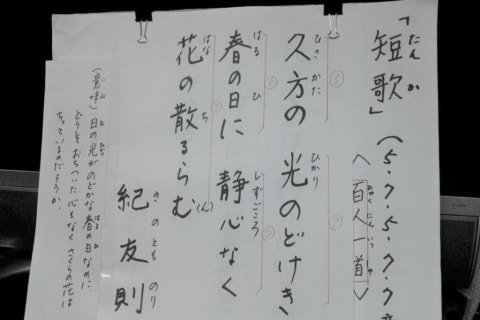 たん か
「短歌」(5.7.5.7.7
ひゃくにんいっしゅ
＜百人一首＞
⑤ ⑦
ひさ かた ひかり
久方の 光のどけき
⑤ ⑦
はる ひ しずごころ
春の日に 静心なく
⑦
はな ち (ん)
花の散るらむ
き の とも のり
紀友則
(意味) 日の光がのどかな春の日なのに、
どうして おちついた心もなく さくらの花は
ちっているのだろうか。